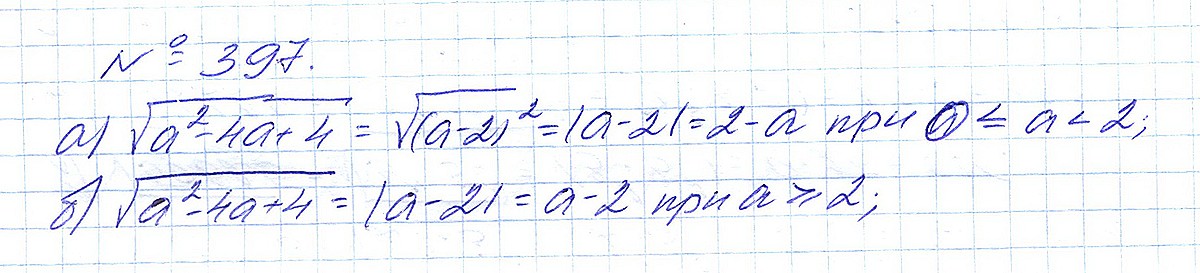 № 397.
а) √(a²-4a+4) = √(a-2)² = |a-2| = 2-a при 0 ≤ a < 2;
б) √(a²-4a+4) = |a-2| = a-2 при a ≥ 2;